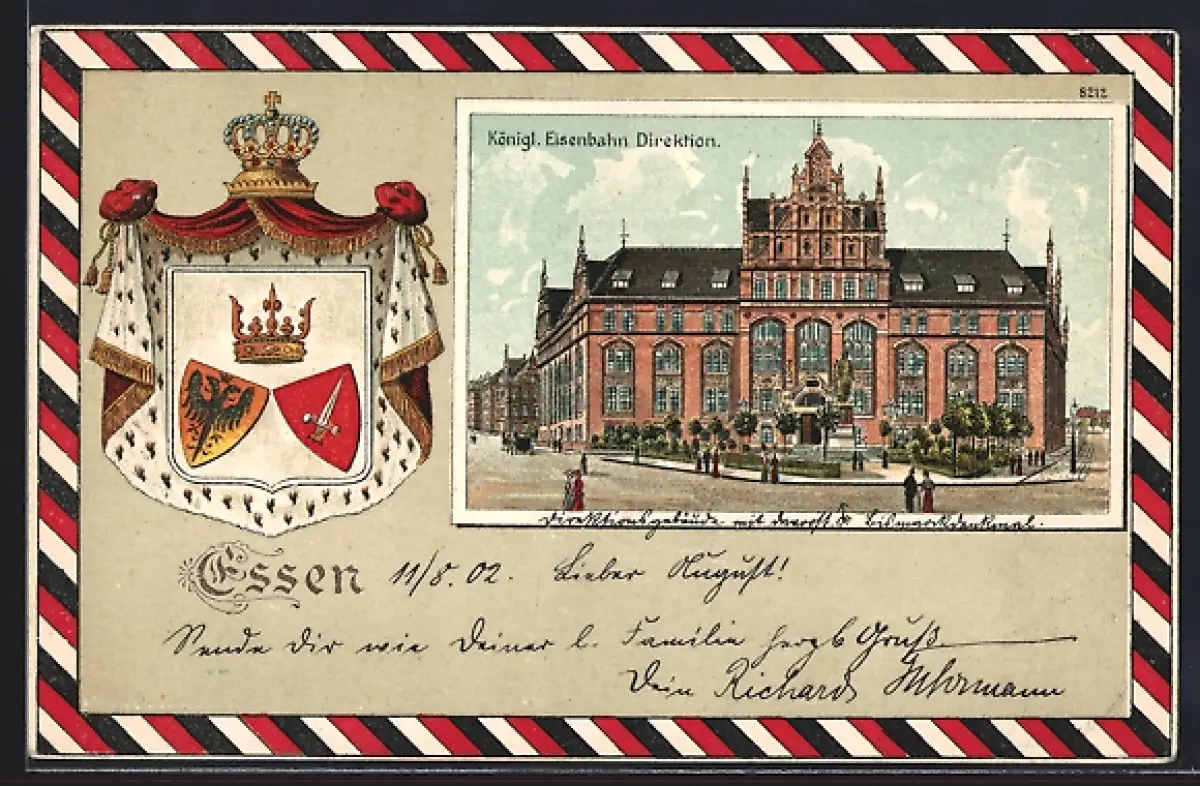 8212
Königl. Eisenbahn Direktion.
Direktionsgebäude mit Bismarckdenkmal.
Essen 11/8.02. Lieber August!
Sende Dir wie Deiner l. Familie herzl Gruß
Dein Richard